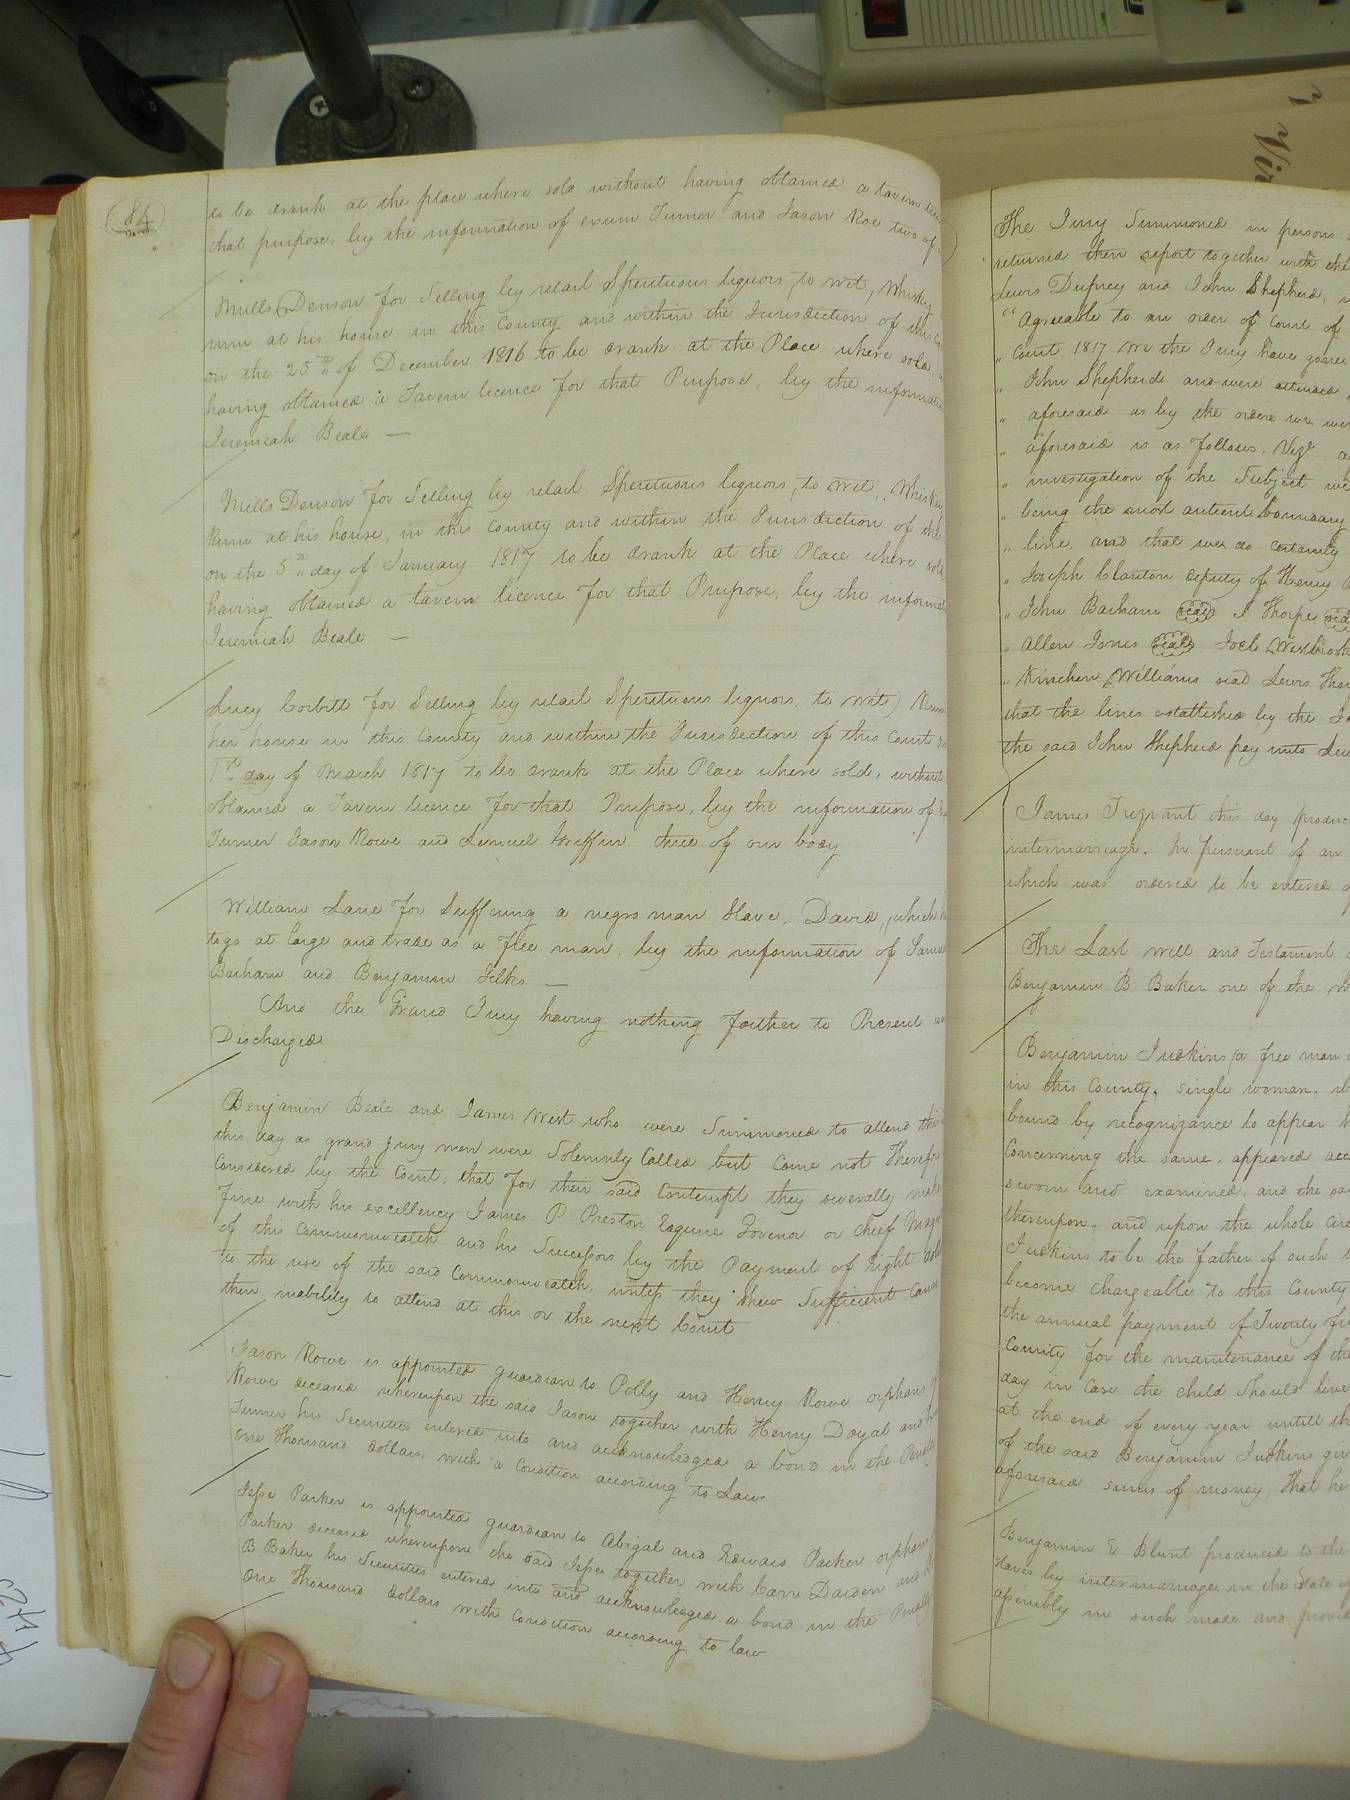 84
to be drank at the place where sold without having obtained a tavern
that purpose, by the information of exum Turner and Jason Roe two of
Mills Denson for Selling by retail Sperituous liquors, to wit, Whisky
rum at his house in this County and within the Jurisdiction of this
on the 25th of December 1816 to be drank at the Place where sold,
having obtained a Tavern licence for that Purpose, by the informati
Jeremiah Beale —
Mills Denson for Selling by retail Sperituous liquors, to wit, Whiskey
Rum at his house, in this County and within the Jurisdiction of this
on the 5th day of January 1817 to be drank at the Place where sold
having obtained a tavern licence for that Purpose, by the informat
Jeremiah Beale —
Lucy Corbitt for Selling by retail Sperituous liquors, to wit) Rum
her house in this County and within the Jurisdiction of this Court
1st day of March 1817 to be drank at the Place where sold, without
obtained a Tavern licence for that Purpose, by the information of
Turner Jason Rowe and Lemuel Griffin three of our body
William Lane for Suffering a negro man Slave, David, which
to go at large and trade as a free man, by the information of Samu
Barham and Benjamin Jelks —
And the Grand Jury having nothing further to Present
Discharged
Benjamin Beale and James West who were Summoned to attend this
this day as grand jury men were Solemnly Called but Came not Therefore
Considered by the Court, that for their said Contempt they severally make
Fine with his excellency James P Preston Esquire Govenor or chief Mag
of this Commonwealth and his Successors by the Payment of Eight doll
to the use of the said Commonwealth, unless they shew Sufficient Cause
their inability to attend at this or the next Court
Jason Rowe is appointed guardian to Polly and Henry Rowe orphans of
Rowe deceased whereupon the said Jason together with Henry Doyal and
Turner his Securities entered into and acknowledged a bond in the Penalty
One Thousand dollars, with a Condition according to Law
Jesse Parker is appointed guardian to Abigal and Edward Parker orphans
Parker deceased whereupon the said Jesse together with Carr Darden and
B Baker his Securities entered into and acknowledged a bond in the Penalty
One Thousand dollars with Condition according to law
The Jury Summoned in persons
returned their report together with the
Lewis Dupney and John Shepherd,
"Agreeable to an order of Court of
" Court 1817 We the Jury have gone
" John Shepherd and were attended
" aforesaid as by the order we wer
" aforesaid is as follows, Vizt
" investigation of the Subject we
" being the antient boundary
" line, and that we do certainly
" Joseph Clanton deputy of Henry
" John Barham seal J Thorpe
" Allen Jones seal Joel Westbrook
" Kinchen Williams seal Lewis Thor
that the lines established by the
the said John Shepherd pay unto Lew
James Trezvant this day produc
intermarriage. In pursuant of an
which was ordered to be entered
The Last will and Testament
Benjamin B Baker one of the
Benjamin Judkins, a free man
in this County, single woman,
bound by recognizance to appear
Concerning the same, appeared acc
sworn and examined, and the
thereupon, and upon the whole circ
Judkins to be the father of such
become chargeable to this County
the annual payment of Twenty fi
County for the maintenance of the
day in case the child Should live
at the end of every year untill th
of the said Benjamin Judkins giv
aforesaid sums of money, that he
Benjamin E Blunt produced to the
slaves by intermarriage in the State of
assembly in such made and provid